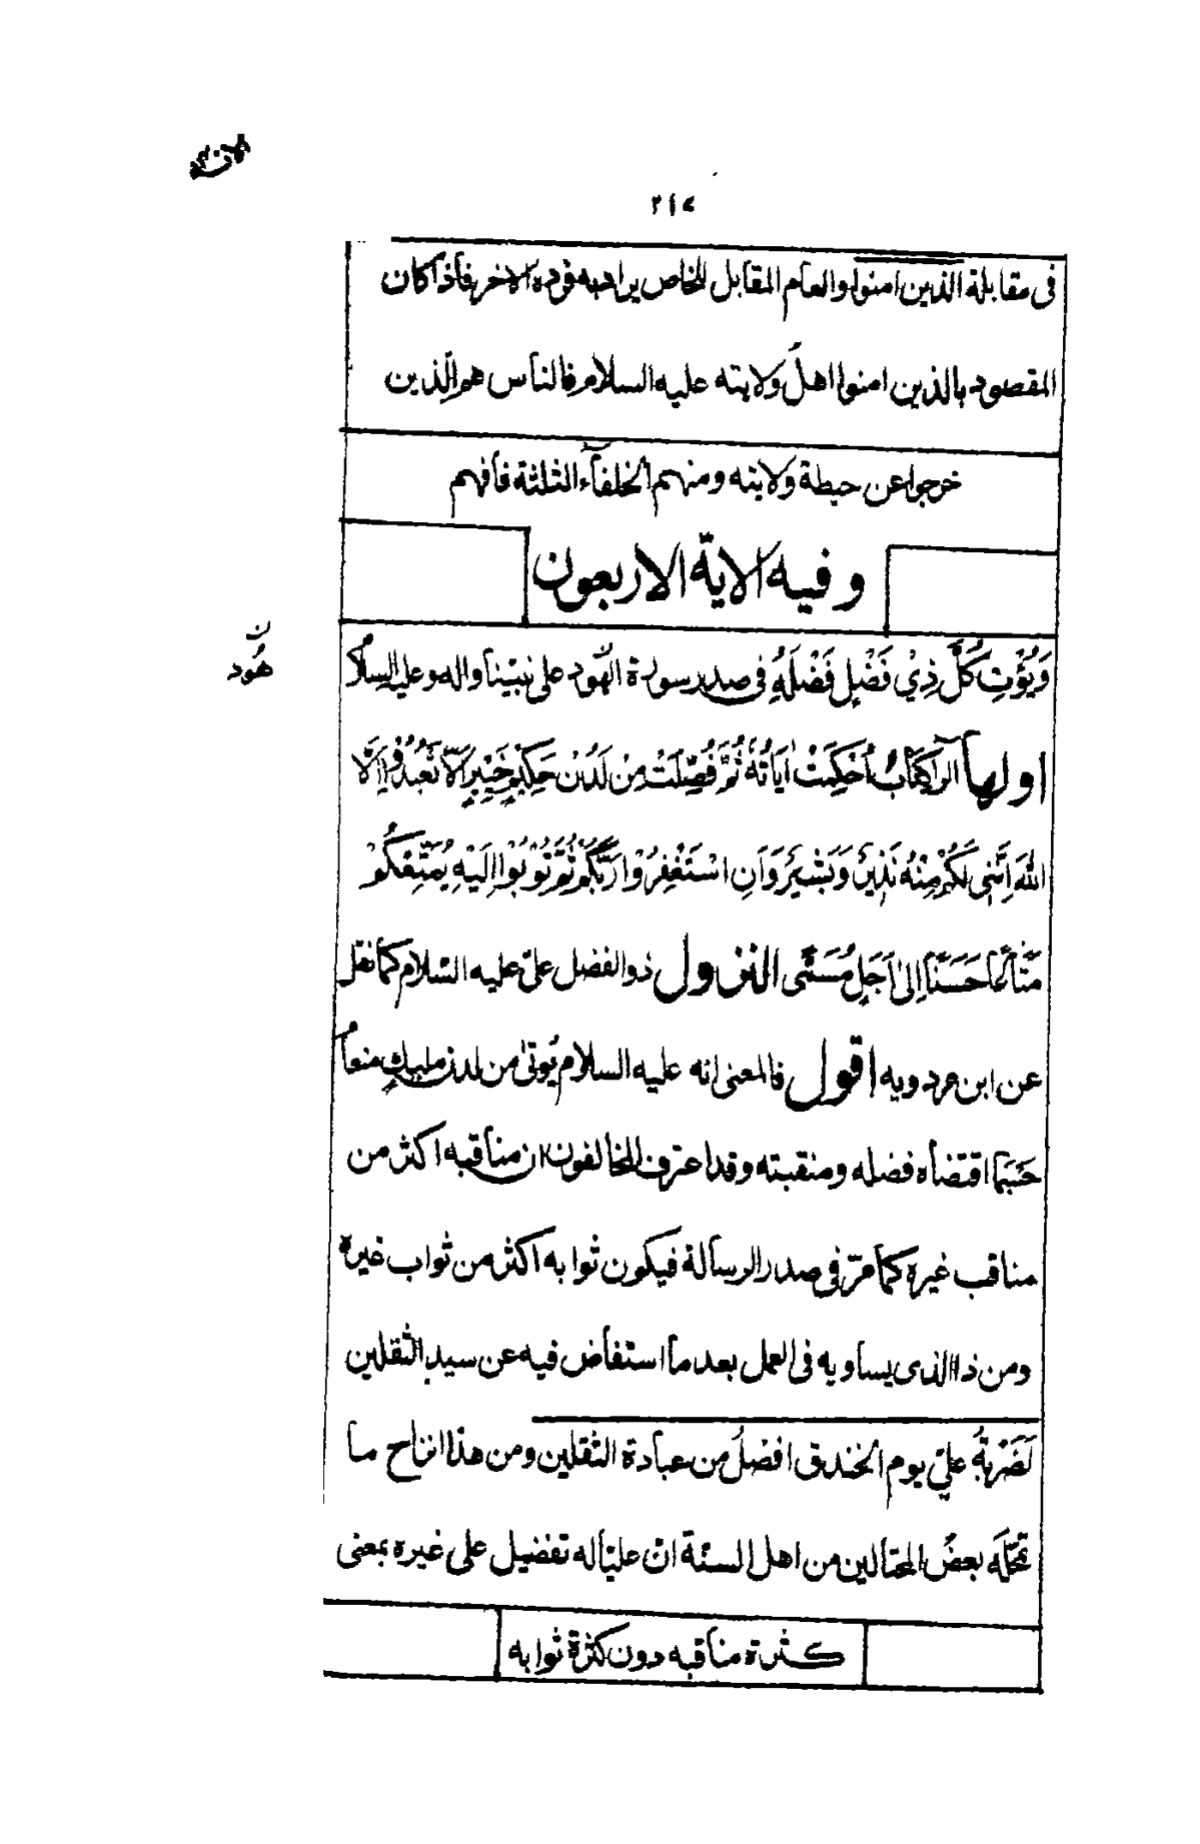 ٢١٧
فى مقابلة الذين امنوا والعام المقابل للخاص يراد به فرده الاخر فاذا كان
المقصود بالذين امنوا اهلُ ولايته عليه السلام فالناس هم الّذين
خرجوا عن حيطة ولايته ومنهم الخلفآء الثلثة فافهم
وفيه الاية الاربعون
وَيُؤْتِ كُلَّ ذِيْ فَضْلٍ فَضْلَهُ فى صدر سورة الهُود على نبينا واله وعليه السلام
هُود
اولها الٓرٰ كِتَابٌ اُحْكِمَتْ اٰيَاتُهُ ثُمَّ فُصِّلَتْ مِنْ لَدُنْ حَكِيْمٍ خَبِيْرٍ اَلَّا تَعْبُدُوْا اِلَّا
اللّٰهَ اِنَّنِى لَكُمْ مِنْهُ نَذِيْرٌ وَبَشِيْرٌ وَاَنِ اسْتَغْفِرُوْا رَبَّكُمْ ثُمَّ تُوْبُوْا اِلَيْهِ يُمَتِّعْكُمْ
مَّتَاعًا حَسَنًا اِلىٰ اَجَلٍ مُسَمًّى النزول ذو الفضل علىّ عليه السّلام كما نقل
عن ابن مردويه اقول فالمعنى انه عليه السلام يُوتىٰ من لدن مليكٍ منعامٍ
حَسَبَما اقتضاه فضله ومنقبته وقد اعترف المخالفون ان مناقبه اكثر من
مناقب غيره كما مرّ فى صدر الرسالة فيكون ثوابه اكثر من ثواب غيره
ومن ذا الذى يساويه فى العمل بعد ما استفاض فيه عن سيد الثقلين
لَضَرْبَةُ عليّ يوم الخندق افضلُ من عبادة الثقلين ومن هذا انزاح ما
تمحّله بعضُ المحتالين من اهل السنّة انّ عليّا له تفضيل على غيره بمعنى
كثرة مناقبه دون كثرة ثوابه